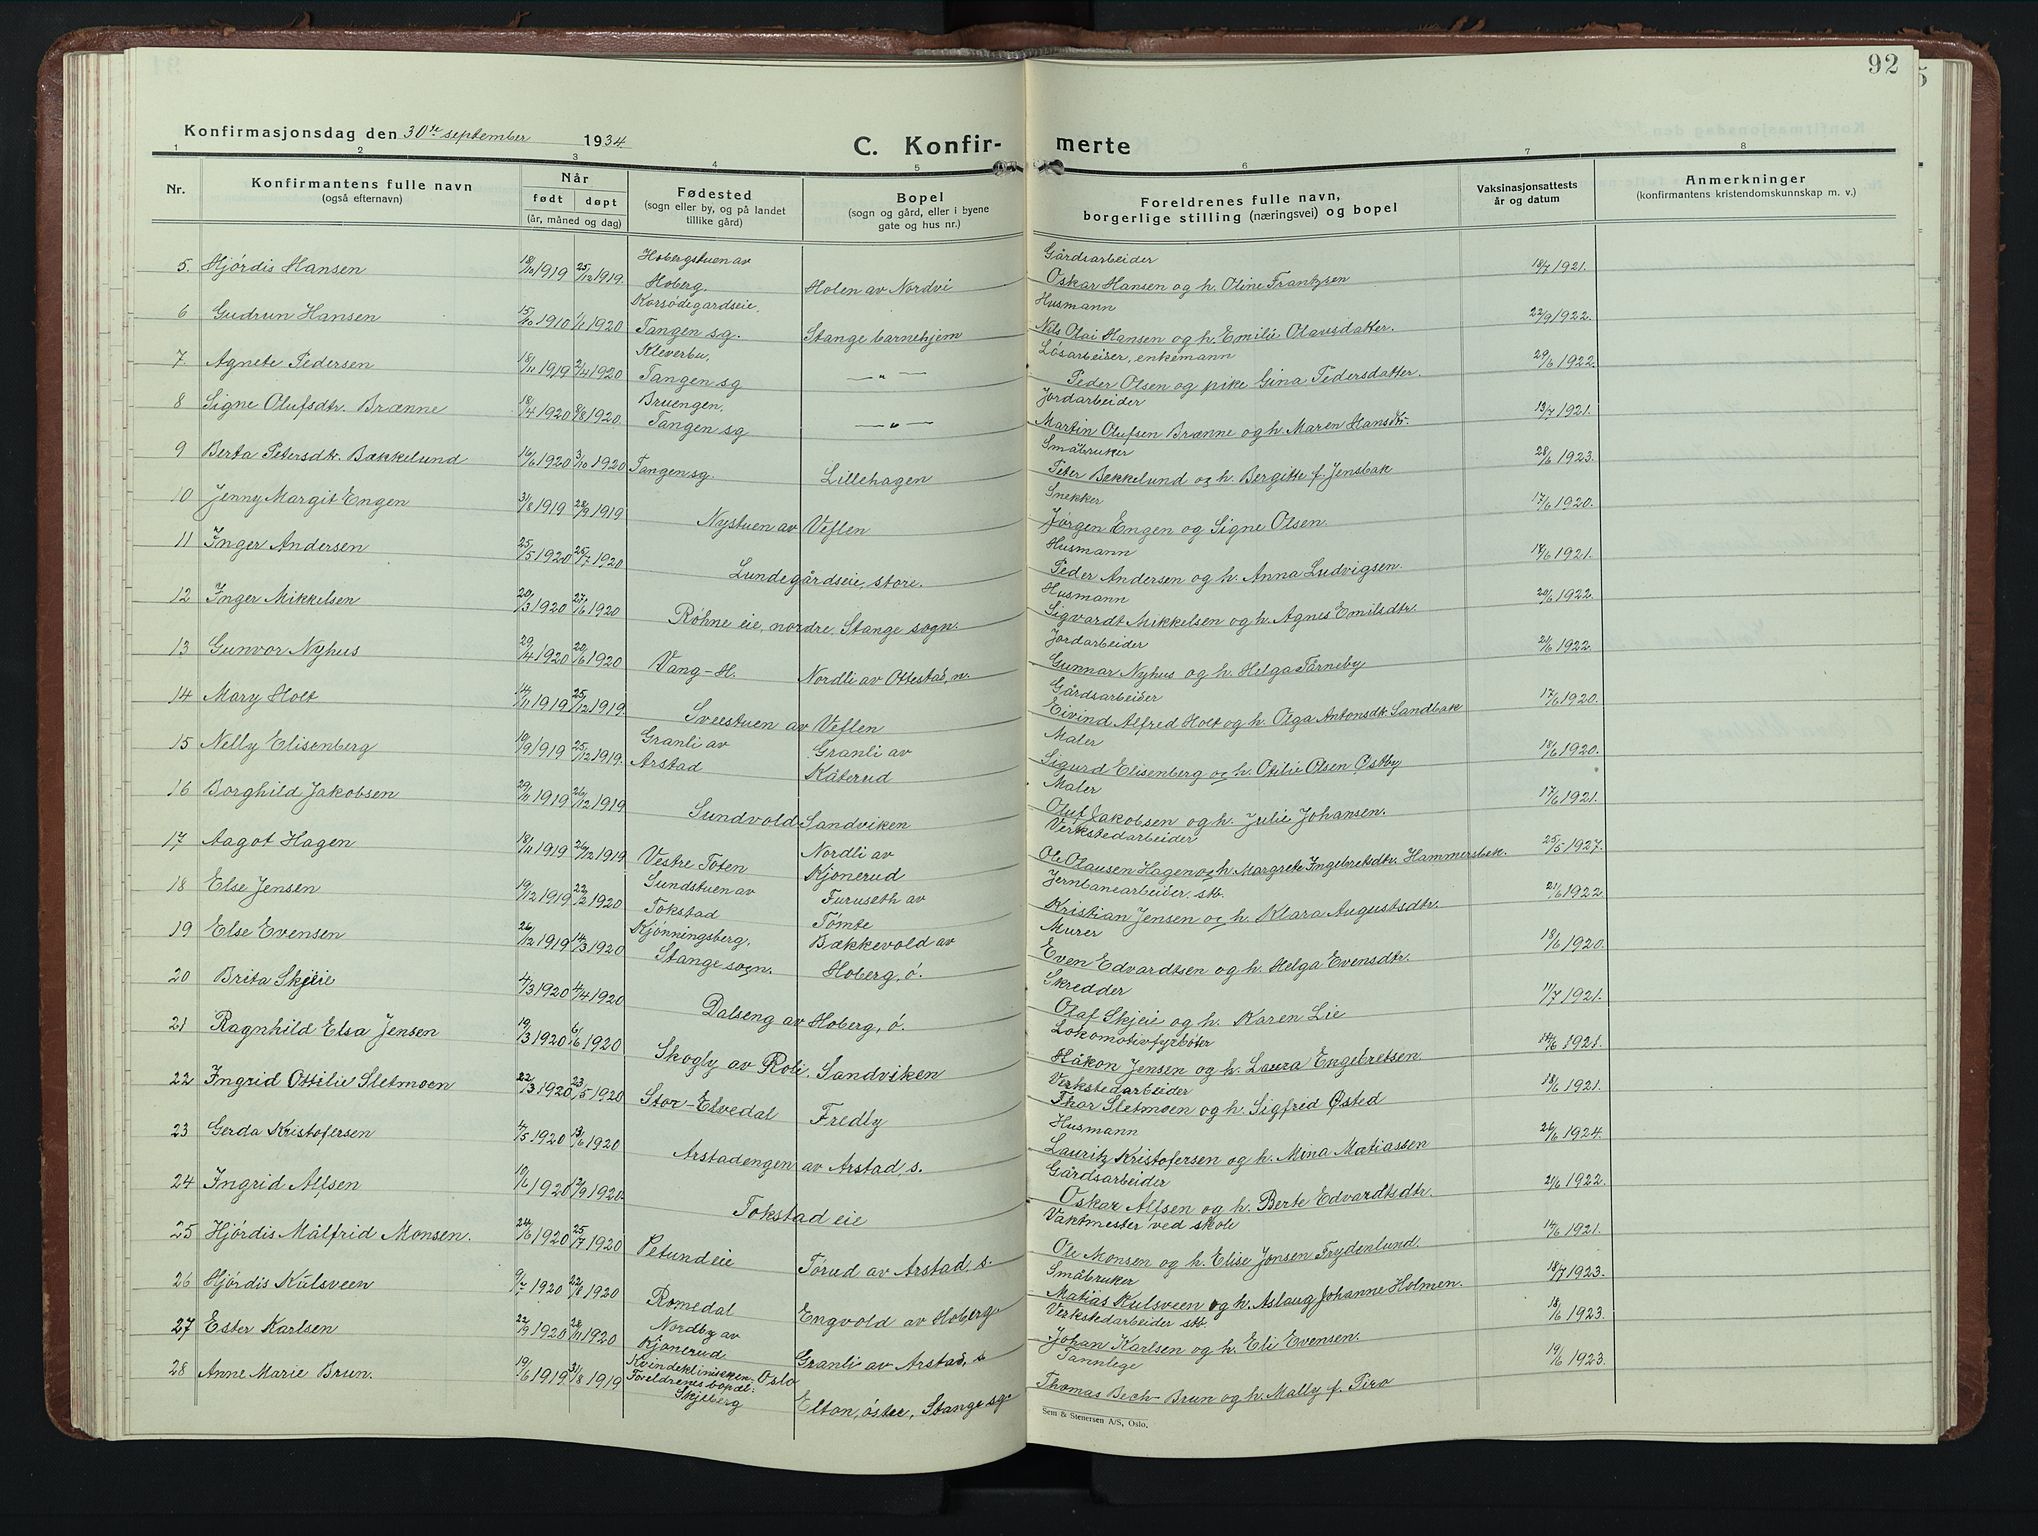 92
Konfirmasjonsdag den 30te september 1934
C. Konfirmerte
1 2 3 4 5 6 7 8
Nr.
Konfirmantens fulle navn
(også efternavn)
Når
født døpt
(år, måned og dag)
Fødested
(sogn eller by, og på landet tillike gård)
Bopel
(sogn og gård, eller i byene gate og hus nr.)
Foreldrenes fulle navn,
borgerlige stilling (næringsvei) og bopel
Vaksinasjonsattests
år og datum
Anmerkninger
(konfirmantens kristendomskunnskap m. v.)
5. Hjórdis Hansen 18/12 1919 25/12 1919. Hobergstuen av Hoberg. Holen av Nordvi Gårdsarbeider Oskar Hansen og h. Oline Frantzsen 18/7 1921.
6 Gudrun Hansen 15/10 1910 1/1 1920 Korsódegardseie, Tangen sg. Stange barnehjem Husmann Nils Olai Hansen og h. Emilie Olausdatter. 22/9 1922.
7. Agnete Pedersen 18/11 1919 2/4 1920 Kleverbu, Tangen sg —„— Lósarbeider, enkemann Peder Olsen og pike Gina Pedersdatter. 29/6 1922.
8 Signe Olufsdtr. Brænne 18/4 1920 8/8 1920 Bruengen, Tangen sg —„— Jordarbeider Martin Olufsen Brænne og h. Maren Hansdtr. 13/7 1921.
9 Berta Petersdtr. Bækkelund 16/6 1920 3/10 1920 Tangen sg. Lillehagen Småbruker Peter Bekkelund og h. Bergitte f. Jensbak 28/6 1923.
10 Jenny Margit Engen 31/8 1919 28/9 1919 Nystuen av Veflen Snekker Jørgen Engen og Signe Olsen. 17/6 1920.
11 Inger Andersen 25/5 1920 25/7 1920 Lundegårdseie, store. Husmann Peder Andersen og h. Anna Ludvigsen. 17/6 1921.
12 Inger Mikkelsen 20/3 1920 27/6 1920 Róhne eie, nordre, Stange sogn. Husmann Sigvardt Mikkelsen og h. Agnes Emilsdtr. 20/6 1922.
13 Gunvor Nyhus 29/4 1920 20/6 1920 Vang-H. Nordli av Ottestad, n. Jordarbeider Gunnar Nyhus og h. Helga Tárneby 21/6 1922.
14 Mary Holt 14/11 1919 25/12 1919. Sveestuen av Veflen Gårdsarbeider Eivind Alfred Holt og h. Olga Antonsdtr. Sandbak 17/6 1920.
15 Nelly Elisenberg 10/9 1919 25/12 1919. Granli av Arstad Granli av Kåterud Maler Sigurd Elisenberg og h. Otilie Olsen Østby 18/6 1920.
16 Borghild Jakobsen 29/11 1919 26/12 1919 Sundvold, Sandviken Maler Oluf Jakobsen og h. Julie Johansen. 17/6 1921.
17 Aagot Hagen 18/11 1919 26/12 1919 Vestre Toten Nordli av Kjonerud Verkstedarbeider Ole Olausen Hagen og h. Margrete Ingebretsdtr. Hammersbak. 25/5 1927.
18 Else Jensen 19/12 1919 22/2 1920 Sundstuen av Tokstad Furuseth av Tómte Jernbanearbeider stb. Kristian Jensen og h. Klara Augustsdtr. 21/6 1922
19 Else Evensen 26/12 1919 14/3 1920 Kjónningsberg, Stange sogn. Bækkevold av Hoberg, ó. Murer Even Edvardtsen og h. Helga Evensdtr. 18/6 1920.
20 Brita Skjeie 4/3 1920 4/4 1920 Dalseng av Hoberg, ó. Skredder Olaf Skjeie og h. Karen Lie 11/7 1921.
21 Ragnhild Elsa Jensen 19/3 1920 6/6 1920 Skogby av Roli. Sandviken Lokomotivfyrbóter Håkon Jensen og h. Laura Engebretsen 14/6 1921.
22 Ingrid Ottilie Sletmoen 22/3 1920 23/5 1920 Stor-Elvedal Fredly Verkstedarbeider Thor Sletmoen og h. Sigfrid Østed 18/6 1921.
23 Gerda Kristofersen 4/5 1920 13/6 1920 Arstadengen av Arstad s. Husmann Lauritz Kristofersen og h. Mina Matiassen 26/6 1924.
24 Ingrid Alfsen 10/6 1920 12/9 1920 Tokstad eie Gårdsarbeider Oskar Alfsen og h. Berte Edvardtsdtr. 21/6 1922.
25 Hjórdis Målfrid Monsen. 24/6 1920 25/7 1920 Petundeie Torud av Arstad s. Vaktmester ved skole Ole Monsen og h. Elise Jonsen Frydenlund. 14/6 1921.
26 Hjórdis Kulsveen 9/7 1920 22/8 1920 Romedal Engvold av Hoberg Småbruker Matias Kulsveen og h. Aslaug Johanne Holmen. 18/7 1923.
27 Ester Karlsen 22/9 1920 28/11 1920 Nordby av Kjonerud Granli av Arstad, s Verkstedarbeider stb. Johan Karlsen og h. Eli Evensen. 18/6 1923.
28 Anne Marie Brun. 19/6 1919 31/8 1919 Kvindeklinikken. Oslo Foreldrenes bopæl: Skjeberg Elton, óstre, Stange sg Tannlege Thomas Bech-Brun og h. Mally f. Piro 19/6 1923.
Sem & Stenersen A/S, Oslo.